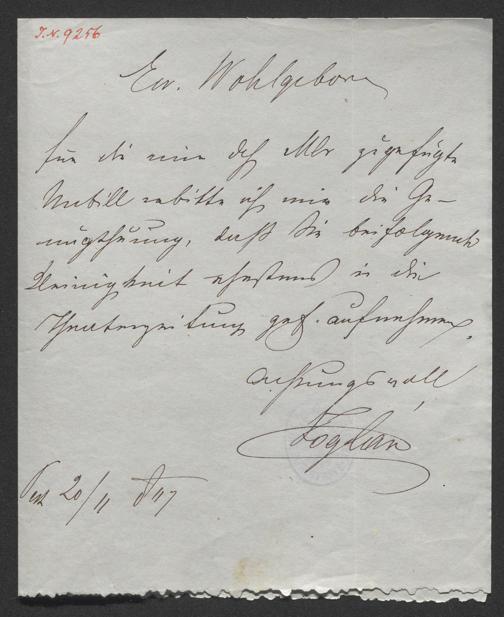 I.N. 9256
Ew. Wohlgeborn
für die mir zugefügte
Unbill erbitte ich mir die Ge-
nugthuung, daß Sie beifolgende
Kleinigkeit ehestens in die
Theaterzeitung gef. aufnehmen.
achtungsvoll
Pest 20/11